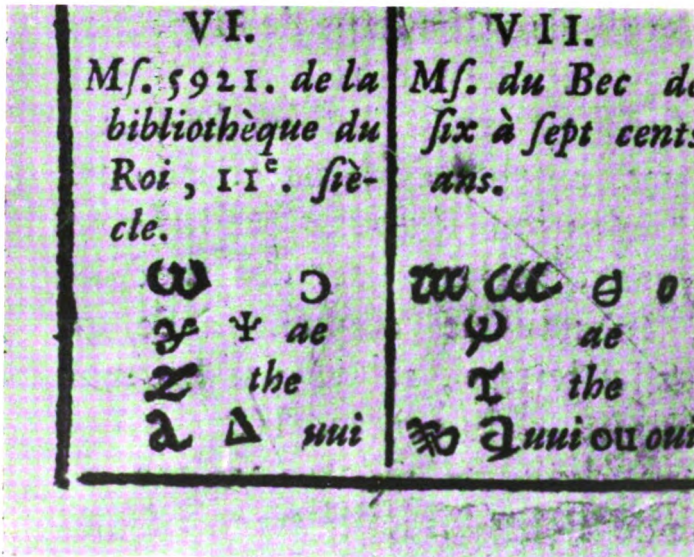 VI.
Mſ. 5921. de la
bibliothèque du
Roi, 11e. ſiè-
cle.
ω Ɔ
Ψ ae
Z the
Δ uui
VII.
Mſ. du Bec de
ſix à ſept cents
ans.
o
ae
the
uui ou oui